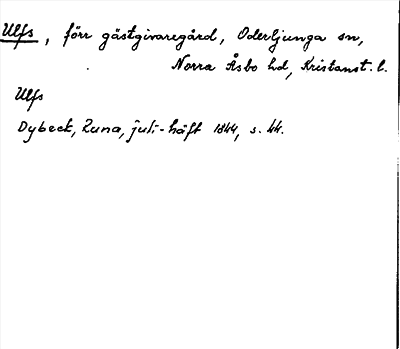 Ulfs, förr gästgivaregård, Oderljunga sn,
Norra Åsbo hd, Kristianst. l.
Ulfs
Dybeck, Runa, juli-häft 1844, s. 44.